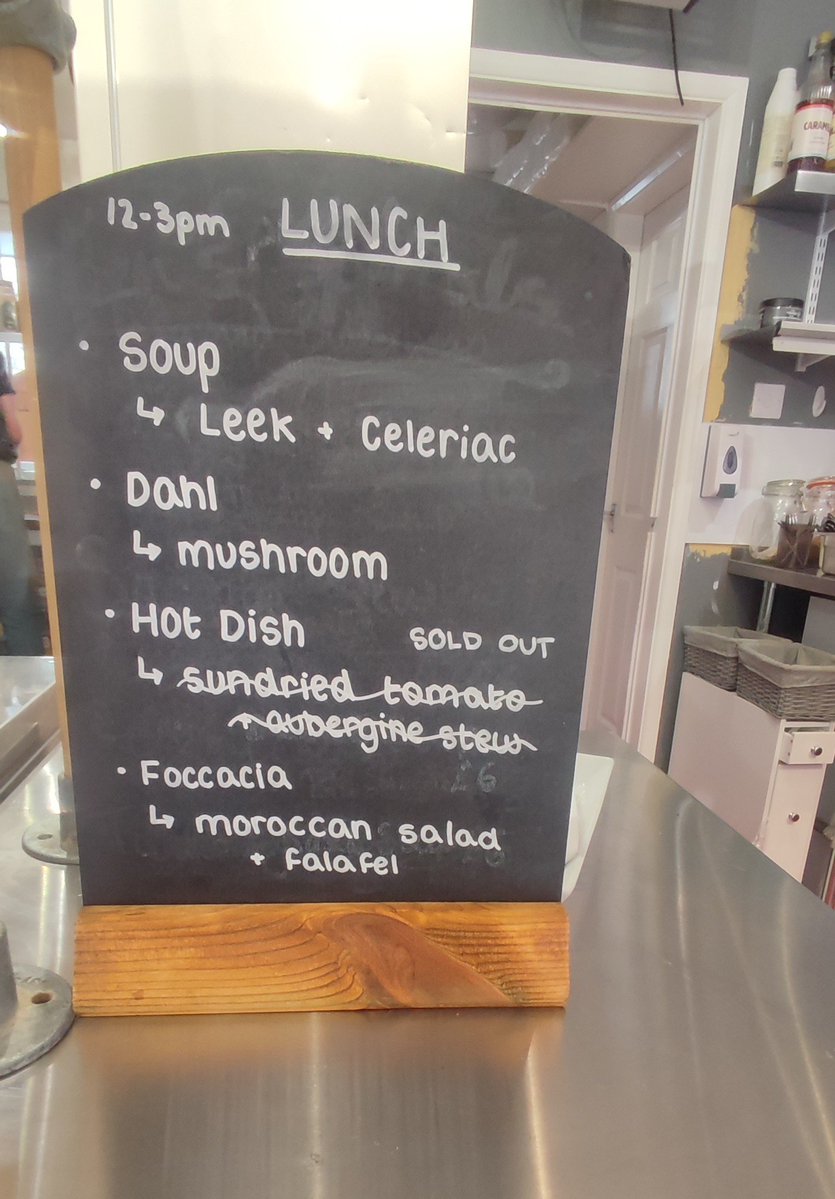 12-3pm LUNCH
• Soup
↳ Leek + Celeriac
• Dahl
↳ mushroom
• Hot Dish SOLD OUT
↳ sundried tomato
+ aubergine stew
• Foccacia
↳ moroccan salad
+ falafel